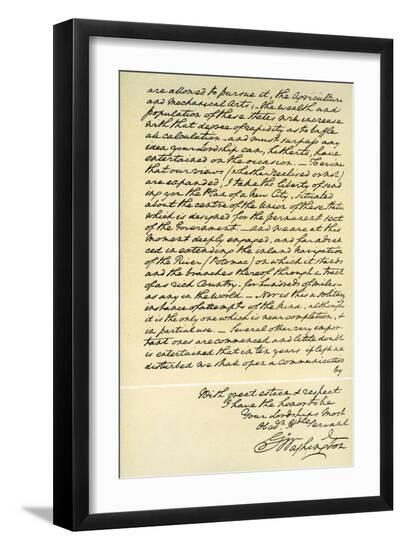 are allowed to pursue it, the Agriculture
and Mechanical Arts; - the wealth and
population of these States will increase
with that degree of rapidity as to baffle
all calculation - and must surpass any
idea your Lordship can, hitherto, have
entertained on the occasion. - To evince
that our views (whether realised or not)
are expanded, I take the liberty of send
ing you the Plan of a New City, situated
about the centre of the Union of these States
which is designed for the permanent seat
of the Government - And we are at this
moment deeply engaged, and far advan
ced in extending the inland Navigation
of the River (Potomac) on which it stands
and the branches thereof through a tract
of as rich Country - for hundreds of miles -
as any in the world. - Nor is this a solitary
instance of attempts of the kind, although
it is the only one which is near completion, &
in partial use. - Several other very impor
tant ones are commenced and little doubt
is entertained that in ten years if left un
disturbed we shall open a communication
by
With great esteem & respect
I have the honor to be
Your Lordships Most
Obed. Hble Servant
Go Washington